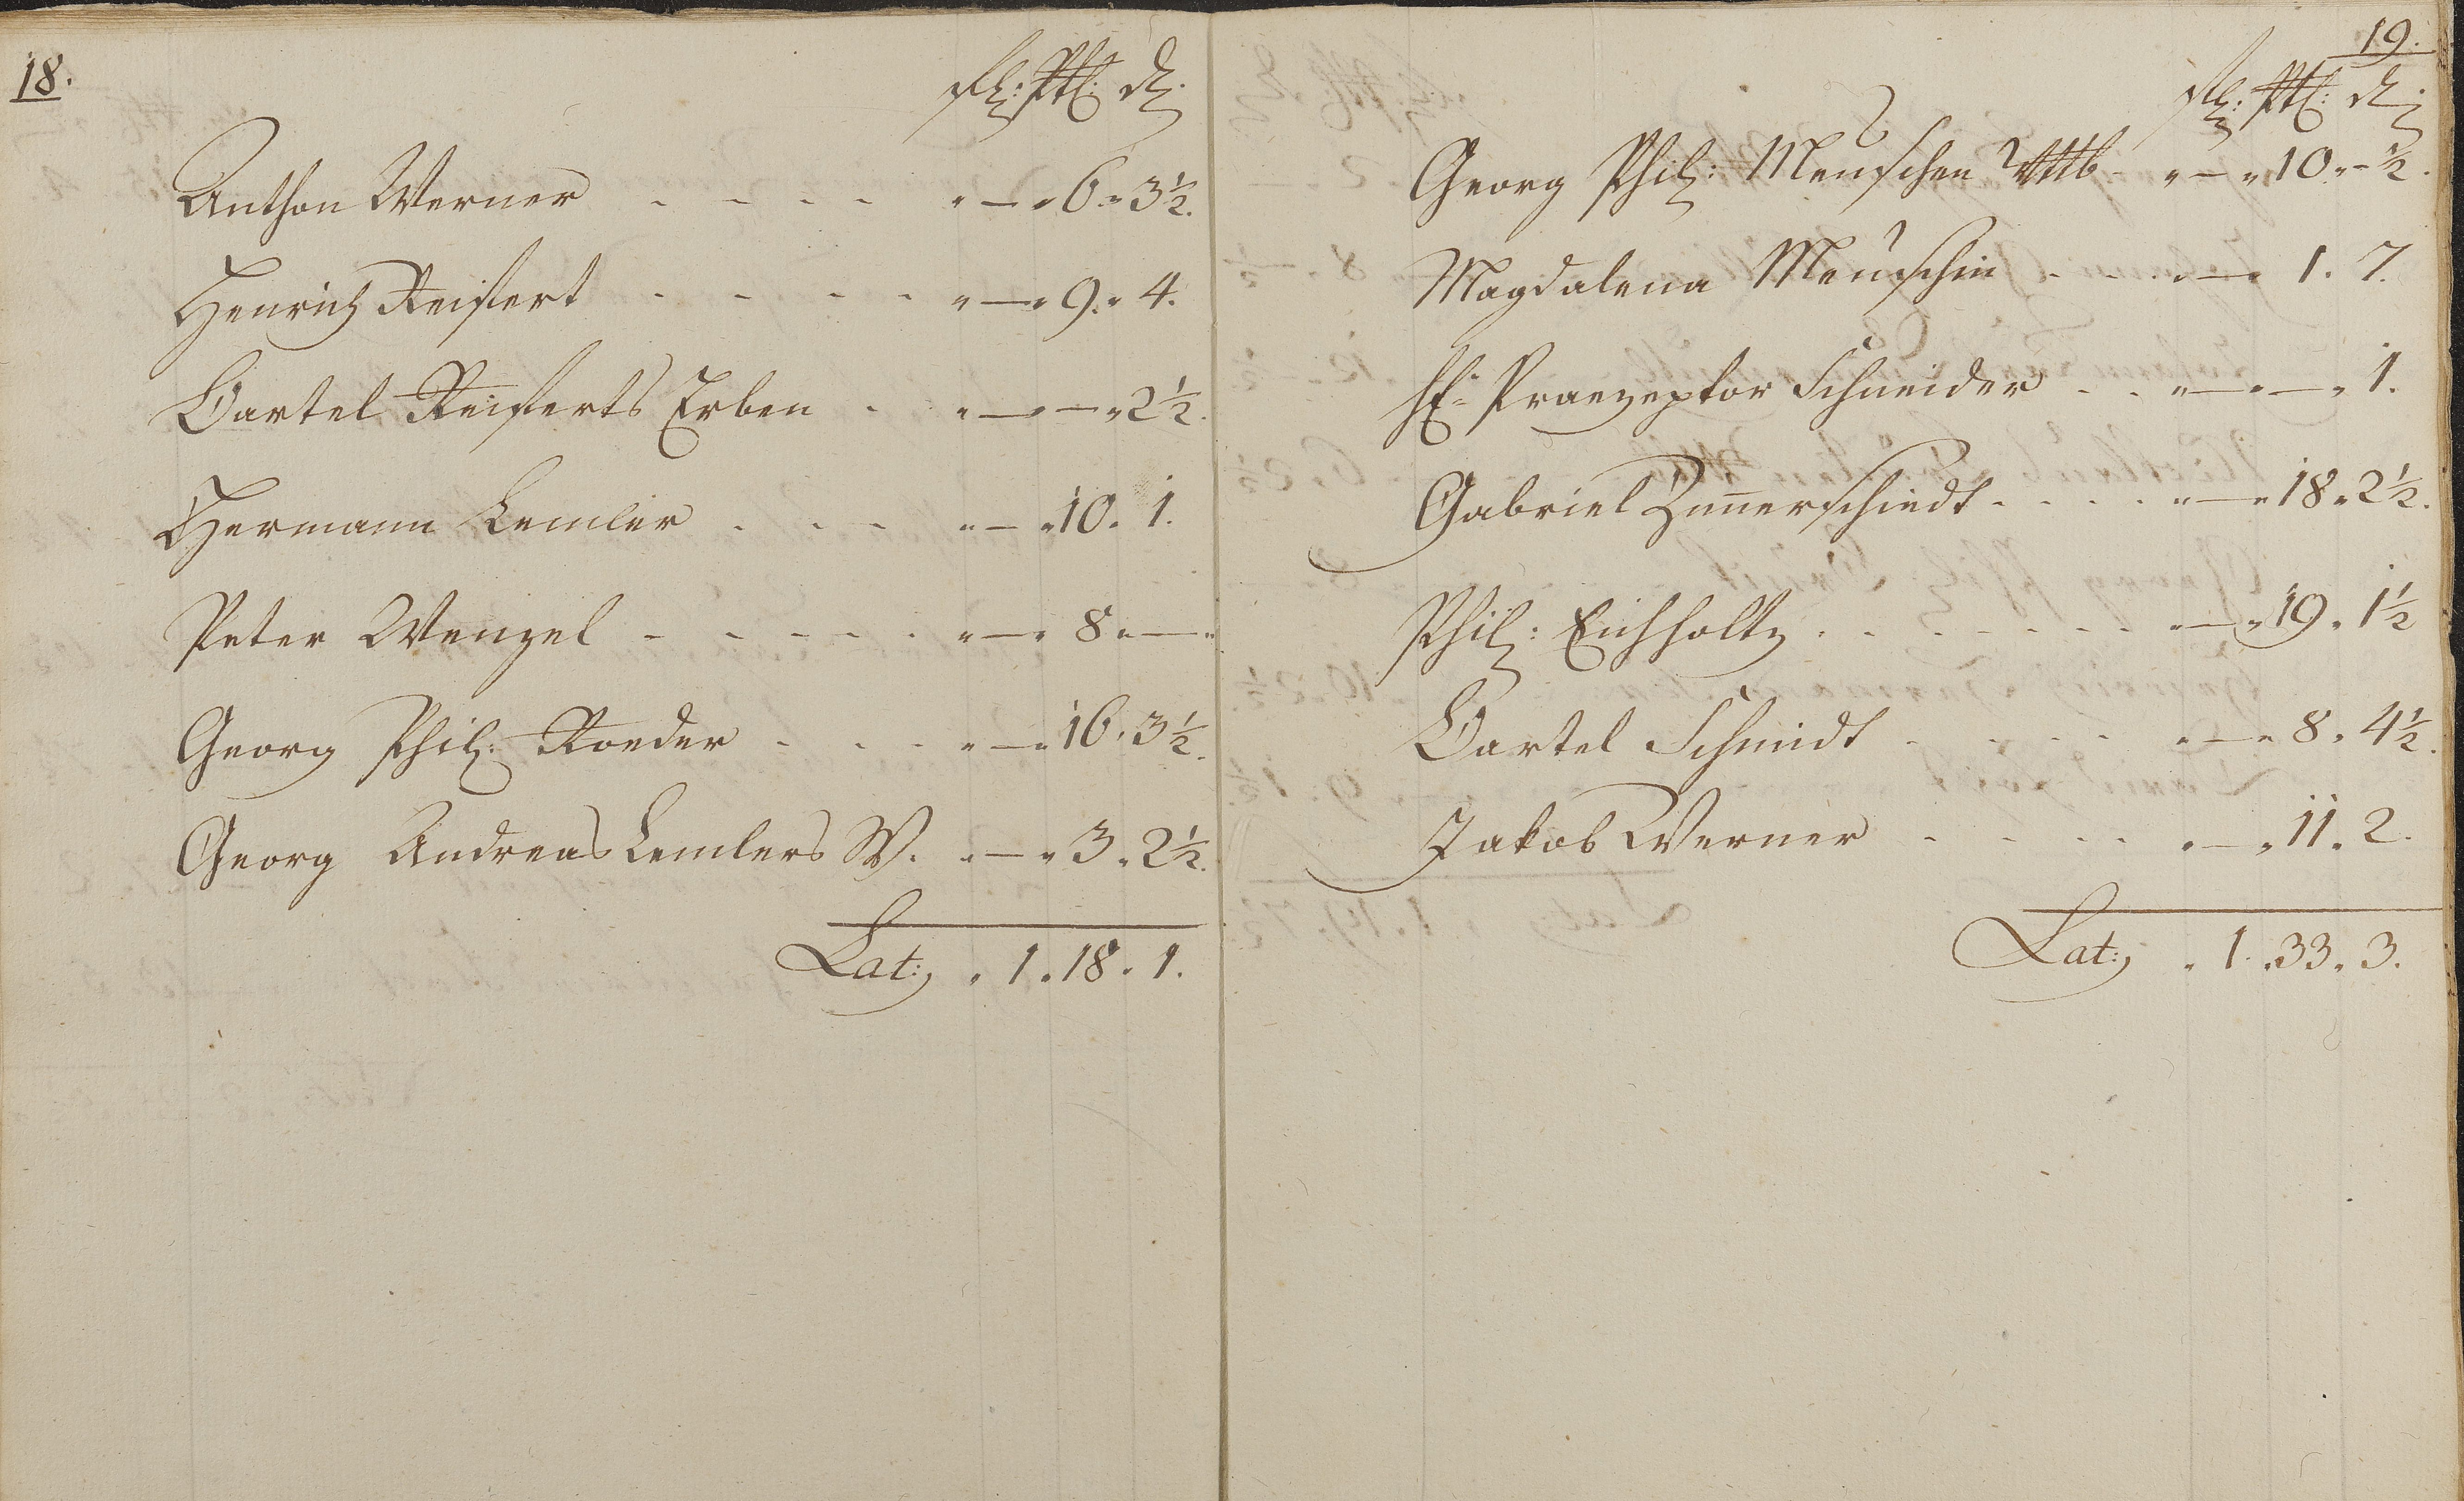 18.
fl: Alb: d.
Anthon Werner - - - - " — " 6. " 3½.
Henrich Reifert - - - - " — " 9. " 4.
Bartel Reiferts Erben - " — " — " 2½.
Hermann Lemler - - - " — " 10. 1.
Peter Wenzel - - - - - " — " 8 " — "
Georg Phil: Roeder - - - " — " 16. 3½.
Georg Andreas Lemlers W. " — " 3. 2½.
Lat: " 1. 18. 1.
19.
fl: Alb: d.
Georg Phil: Meuschen Wtb - " — " 10 " — ½.
Magdalena Meuschin - - - " — " 1. 7.
H: Praezeptor Schneider - - " — " — " 1.
Gabriel Zimerschiedt - - - - " — " 18 " 2½.
Phil: Eichholtz - - - - - - - " — " 19. 1½
Bartel Schmidt - - - - " — " 8. 4½.
Jakob Werner - - - - " — " 11. 2.
Lat: " 1. 33. 3.